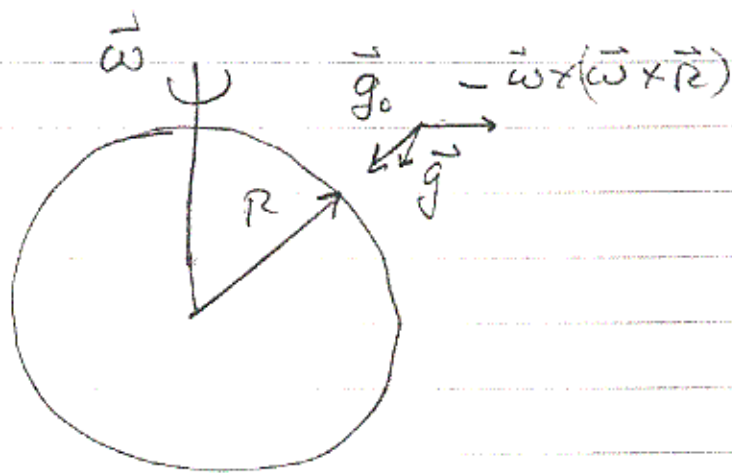 ω⃗
g⃗₀ - ω⃗×(ω⃗×R⃗)
g⃗
R